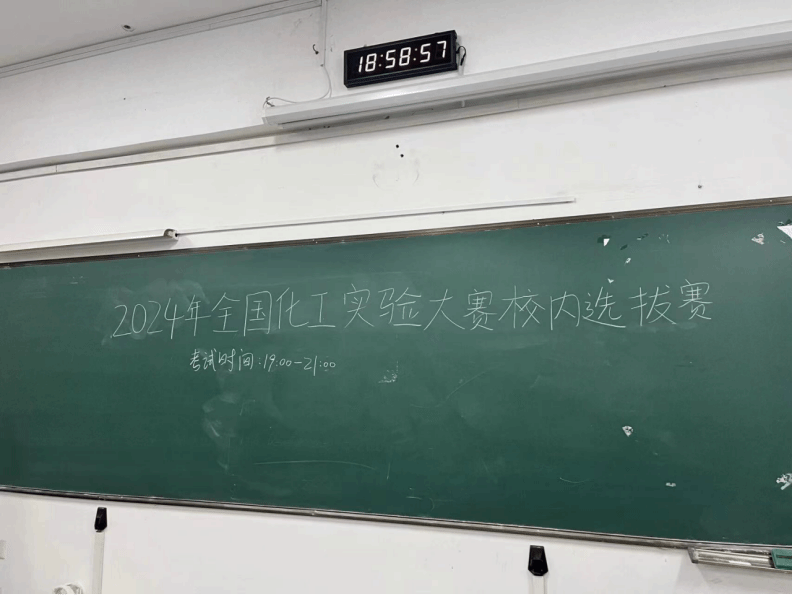 18:58:57
2024年全国化工实验大赛校内选拔赛
考试时间:19:00-21:00